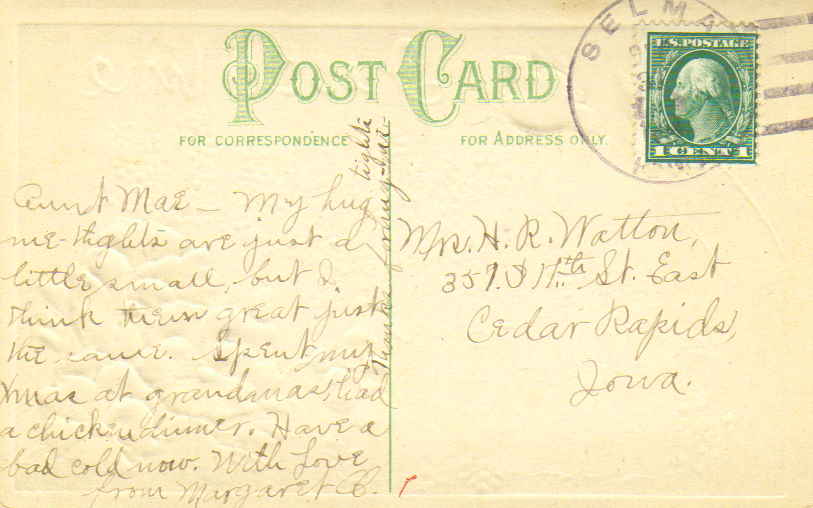 POST CARD
FOR CORRESPONDENCE
FOR ADDRESS ONLY.
SELM
U.S. POSTAGE
1 CENT 1
Aunt Mae – My hug
me-tights are just a
little small, but I
think them great just
the same. Spent my
Xmas at grandmas, had
a chicken dinner. Have a
bad cold now. With Love
from Margaret C.
tights
Mrs. H. R. Watton,
St. East
Cedar Rapids,
Iowa.